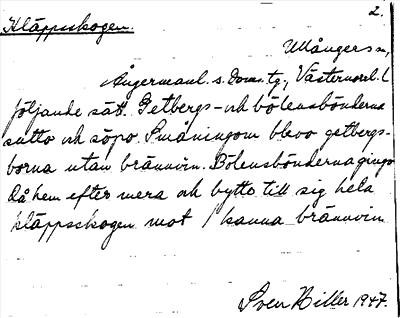 2.
Kläppsskogen.
Ullångers sn,
Ångermanl. s. Doms. tg., Västernorrl. l
följande sätt. Getbergs- och bölensbönderna
sutto och söpo. Småningom blevo getbergs-
borna utan brännvin. Bölensbönderna gingo
då hem efter mera och bytte till sig hela
kläppsskogen mot 1 kanna brännvin
Sven Hiller 1947.